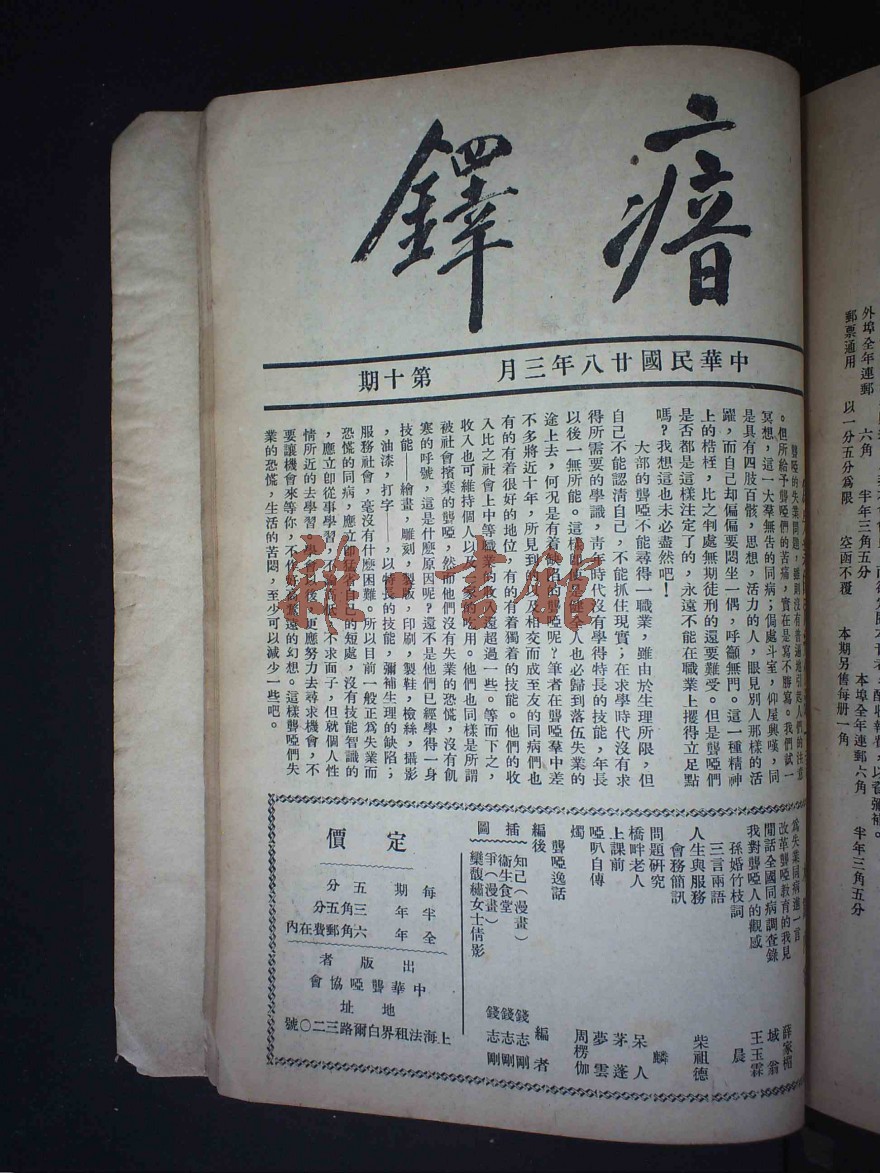 瘖鐸
中華民國廿八年三月　第十期
聾啞的失業問題，雖則沒有普遍地引起人們的注意
。但所給予聾啞們的苦痛，實在是寫不勝寫。我們試一
冥想，這一大羣無告的同病；侷處斗室，仰屋興嘆，同
是具有四肢百骸，思想，活力的人，眼見別人那樣的活
躍，而自己却偏偏要悶坐一偶，呼籲無門。這一種精神
上的桎梏，比之判處無期徒刑的還要難受。但是聾啞們
是否都是這樣注定了的，永遠不能在職業上擢得立足點
嗎？我想這也未必盡然吧！
大部的聾啞不能尋得一職業，雖由於生理所限，但
自己不能認清自己，不能抓住現實；在求學時代沒有求
得所需要的學識，靑年時代沒有學得特長的技能，年長
以後一無所能。這樣即使是健全人也必歸到落伍失業的
途上去，何況是有着缺陷的聾啞呢？筆者在聾啞羣中差
不多將近十年，所見到的以及相交而成至友的同病們也
有的有着很好的地位，有的有着獨着的技能。他們的收
入比之社會上中等職業的收入還超過一些。等而下之，
收入也可維持個人以及一家的吃用。他們也同樣是所謂
被社會擯棄的聾啞，然而他們沒有失業的恐慌，沒有飢
寒的呼號，這是什麼原因呢？還不是他們已經學得一身
技能——繪畫，雕刻，製版，印刷，製鞋，檢絲，攝影
，油漆，打字——，以特長的技能，彌補生理的缺陷；
服務社會，毫沒有什麼困難。所以目前一般正爲失業而
恐慌的同病，應立即猛省自己的短處，沒有技能智識的
，應立卽從事學習，不以爲低，不求面子，但就個人性
情所近的去學習，學會以後，更應努力去尋求機會，不
要讓機會來等你，不作好高騖遠的幻想。這樣聾啞們失
業的恐慌，生活的苦悶，至少可以減少一些吧。
爲失業同病進一言　薛家楣
改革聾啞教育的我見　城翁
閒話全國同病調查錄　王玉霖
我對聾啞人的觀感　晨
孫婚竹枝詞
三言兩語
人生與服務　柴祖德
會務簡訊
問題硏究　麟
橋畔老人　呆人
上課前　茅蓬
啞叭自傳　夢雲
燭　周楞伽
聾啞逸話
編後　編者
插圖
知己（漫畫）　錢志剛
衛生食堂　錢志剛
爭（漫畫）　錢志剛
欒馥穗女士倩影
定價
每期五分
半年三角五分
全年六角郵費在內
出版者
中華聾啞協會
地址
上海法租界白爾路三二〇號
外埠全年連郵　六角　半年三角五分　本埠全年連郵六角　半年三角五分
郵票通用　以一分五分爲限　空函不覆　本期另售每册一角
雜·書館